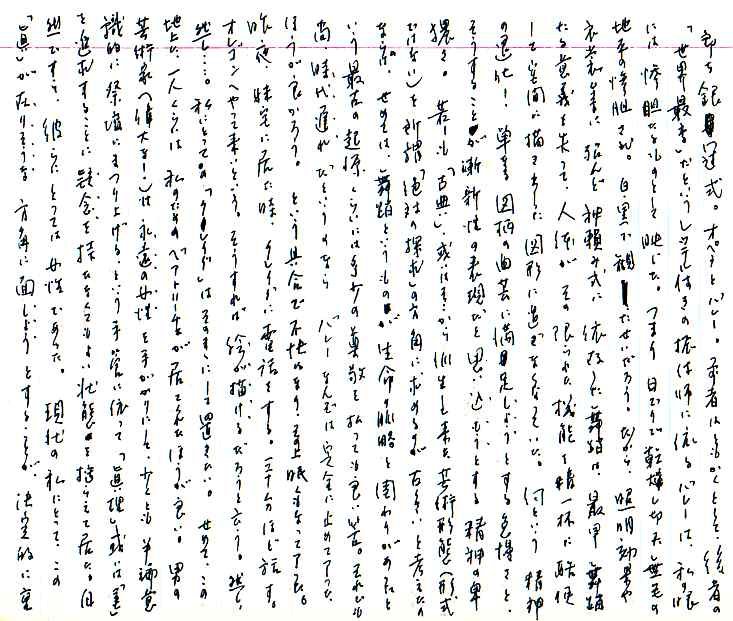 即ち銀婚式。オペラとバレー。前者はともかくとして、後者の
「世界最高」だというレッテル付きの振付師に依るバレーは、私の眼
には惨胆たるものとして映じた。つまり日でりで乾燥し切った無毛の
地平の惨胆さだ。白黒で観たせいだろう。だから、照明効果や
衣裳美に頼んど神頼み式に依存した舞踏は、最早舞踏
たる意義を失って、人体がその限られた機能を精一杯に酷使
して空間に描き出した図形に過ぎなくなっていた。何という精神
の退化！ 単なる図柄の曲芸に満足しようとする怠慢さと、
そうすることが斬新性の表現だと思い込もうとする精神の卑
猥さ。若しも「古典」或はそれから派生して来た芸術形態（形式
ではない）を所謂「絶対の探求」の方角に求めるのが古くさいと考えるの
ならば、せめては、舞踏というものが生命の脈略と関わりがあったと
いう最古の起源くらいには多少の尊敬を払っても良い筈。それでも
尚「時代遅れ」というのなら、バレーなんぞは完全に止めてしまった
ほうが良かろう。という具合で不愉快になり、眠くなって了った。
昨夜、妹宅に居た時、クレイドに電話をする。三十分ほど話す。
オレゴンへやって来いという。そうすれば絵が描けるだろうと云う。然し、
然し……。私にとっては「クレイド」はそのままにして置きたい。せめて、この
地上に一人くらいは私のための「ベアトリーチェ」が居てくれたほうが良い。男の
芸術家（偉大な！）は永遠の女性を手がかりにして、少くとも半論意
識的に祭壇にまつり上げるという手管に依って「真理」或いは「美」
を追求することに疑念を持たなくてもよい状態を拵らえて居た。自
然ですて、彼らにとっては女性であった。現代の私にとって、この
「真」が在りそうな方角に面しようとすることが、決定的に重